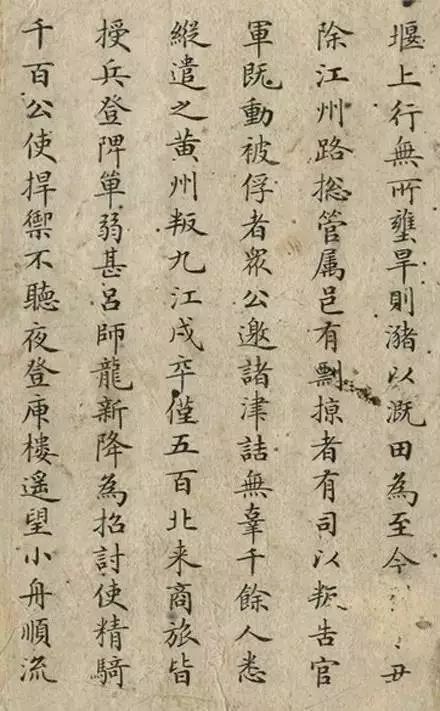 堰上行無所壅旱則瀦以溉田為至今丑
除江州路捴管属邑有剽掠者有司以叛告官
軍既動被俘者眾公邀諸津詰無辜千餘人悉
縱遣之黃州叛九江戍卒僅五百北来商旅皆
授兵登陴單弱甚呂師龍新降為招討使精騎
千百公使捍禦不聽夜登庾樓遙望小舟順流